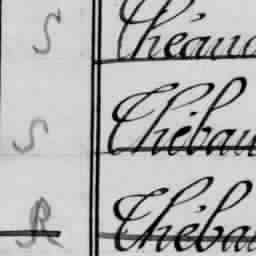 S Théaud
S Thébau
R Théba